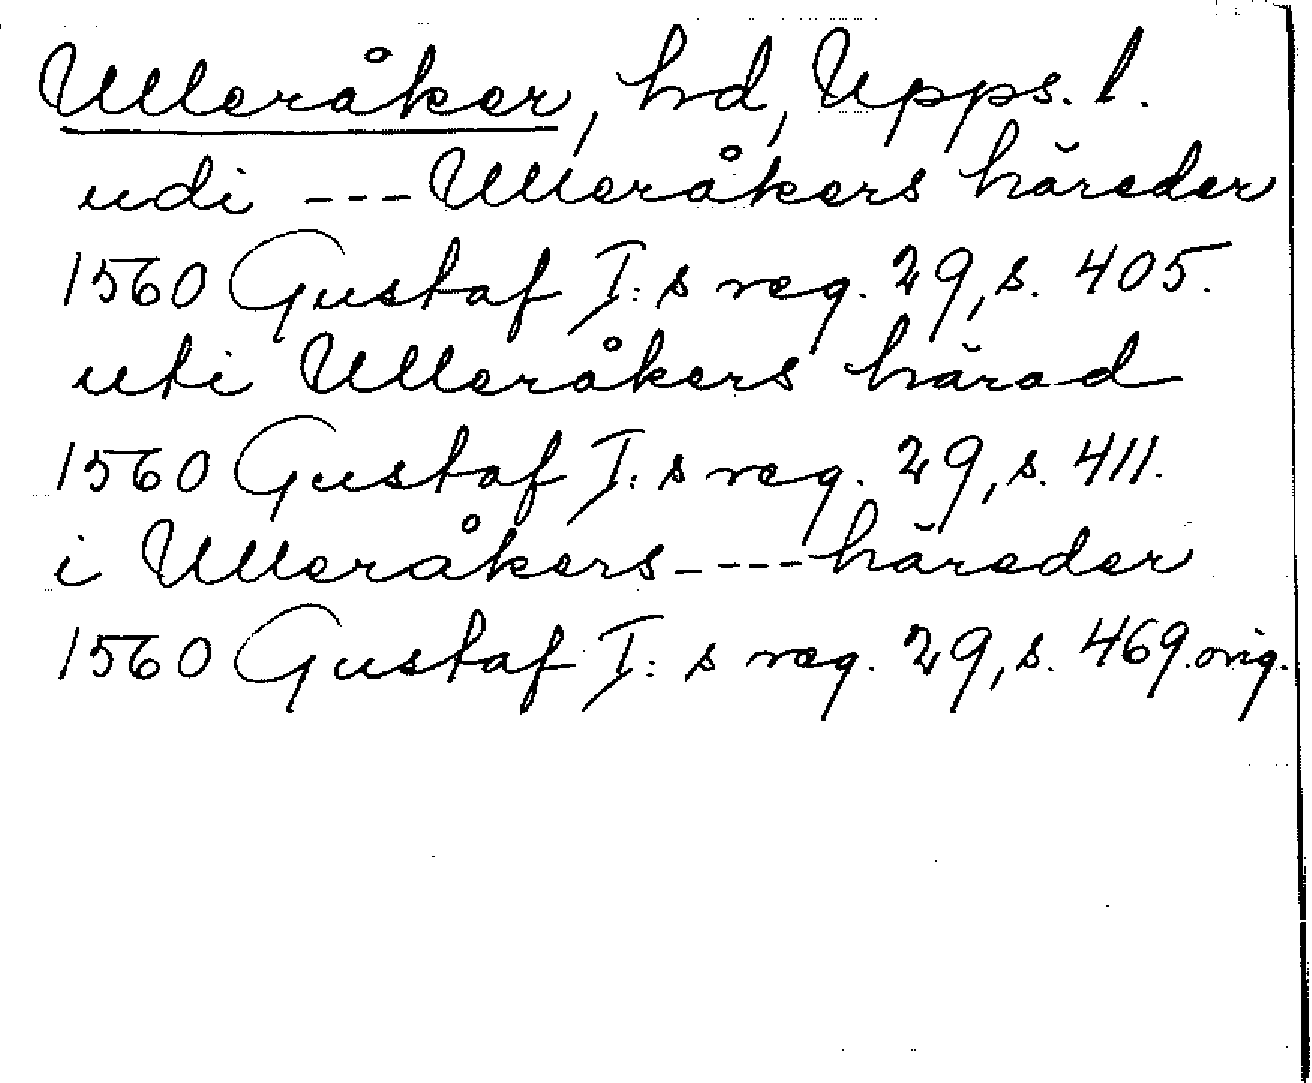 Ulleråker, hd, Upps. l.
udi --- Ulleråkers häreder
1560 Gustaf I:s reg. 29, s. 405.
uti Ulleråkers härad
1560 Gustaf I:s reg. 29, s. 411.
i Ulleråkers ---- häreder
1560 Gustaf I:s reg. 29, s. 469. orig.